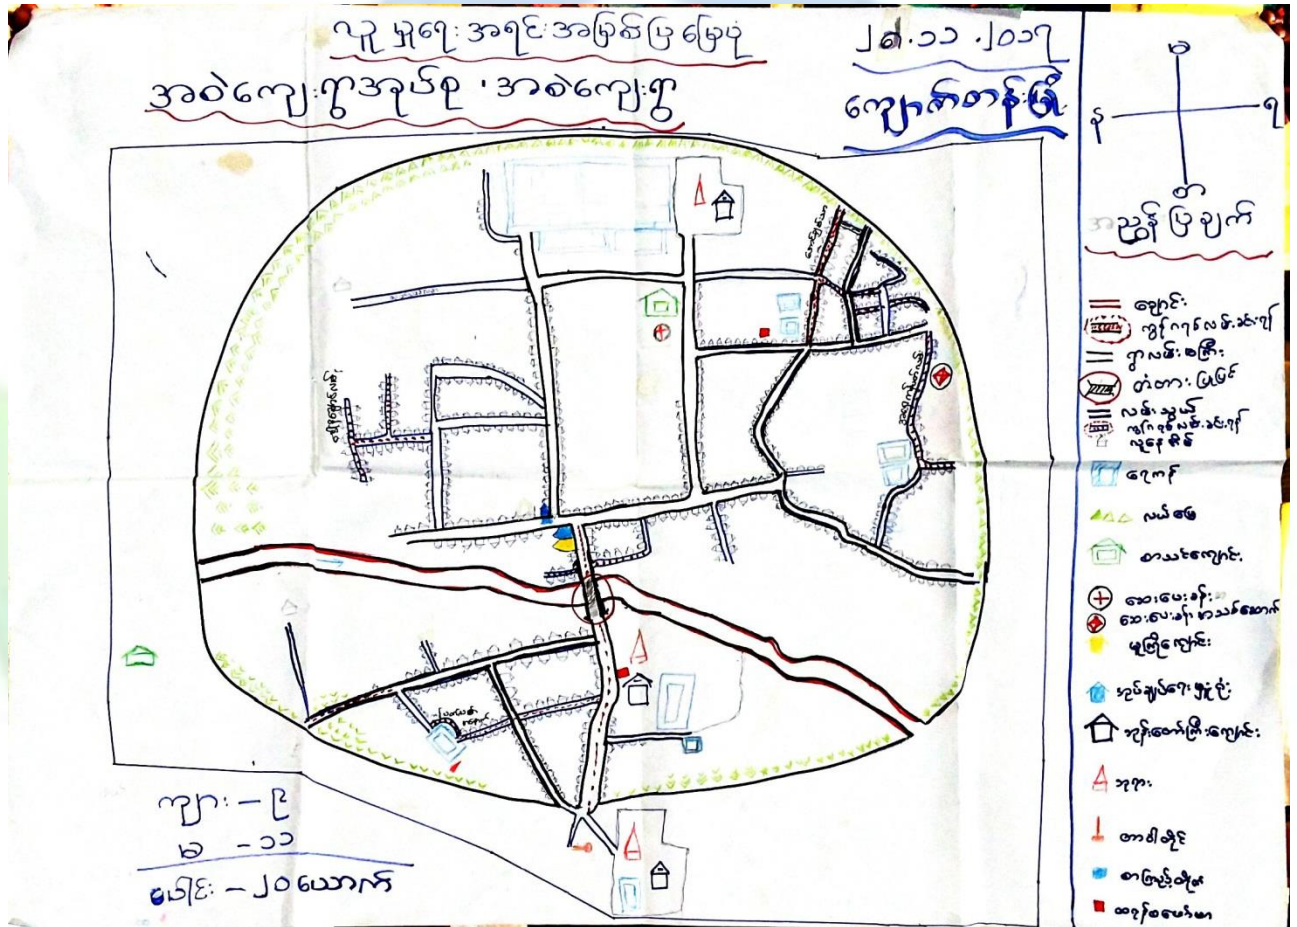 လူမှုရေးအရင်းအမြစ်ပြမြေပုံ
၂၈.၁၁.၂၀၁၇
အစဲကျေးရွာအုပ်စု၊ အစဲကျေးရွာ
ကျောက်တန်းမြို့
မ
န
ရ
တ
အညွှန်းပြချက်
ချောင်း
ကွန်ကရစ်လမ်းခင်းရန်
ရွာလမ်းမကြီး
တံတားပြုပြင်
လမ်းသွယ်
ကွန်ကရစ်လမ်းခင်းရန်
လူနေအိမ်
ရေကန်
လယ်မြေ
စာသင်ကျောင်း
ဆေးပေးခန်း
ဆေးပေးခန်းအသစ်ဆောက်
မူကြိုကျောင်း
အုပ်ချုပ်ရေးမှူးရုံး
ဘုန်းတော်ကြီးကျောင်း
ဘုရား
တာဝါတိုင်
စာကြည့်တိုက်
ထရန်စဖော်မာ
ကျား - ၉
မ - ၁၁
ပေါင်း - ၂၀ ယောက်